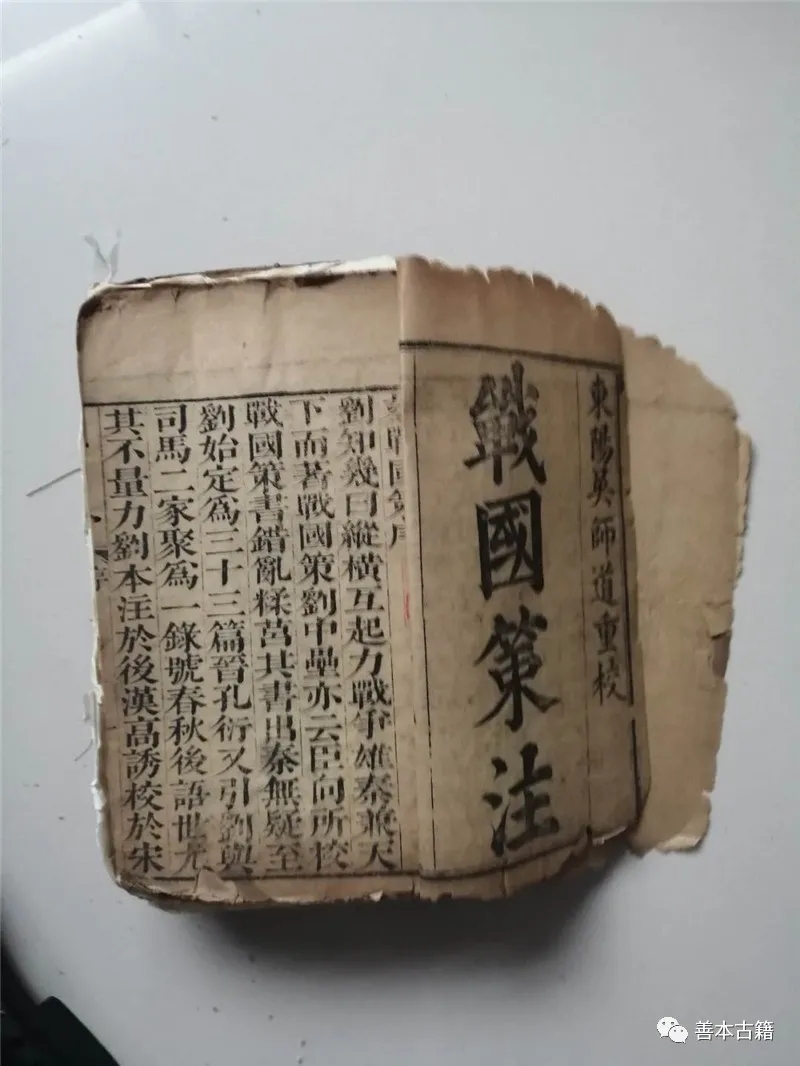 東陽吳師道重校
戰國策注
戰國策序
劉知幾曰縱橫互起力戰爭雄秦兼天
下而著戰國策劉中壘亦云臣向所校
戰國策書錯亂糅莒其書出秦無疑至
劉始定為三十三篇晉孔衍又引劉與
司馬二家聚為一錄號春秋後語世尤
其不量力劉本注於後漢高誘校於宋
序
善本古籍